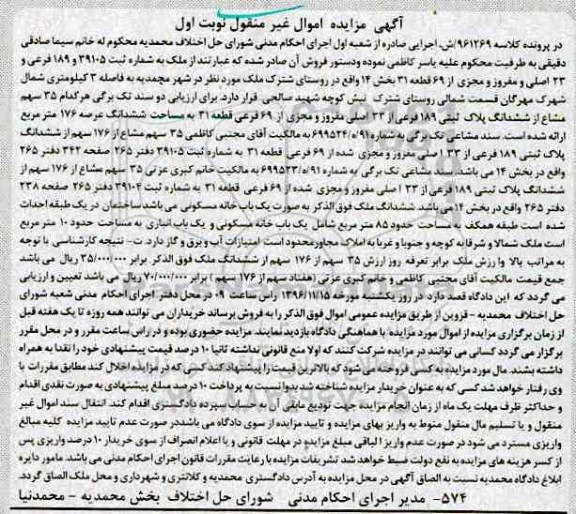 آگهی مزایده اموال غیر منقول نوبت اول
در پرونده کلاسه ۹۶۱۲۶۹/ش.اجرایی صادره از شعبه اول اجرای احکام مدنی شورای حل اختلاف محمدیه محکوم له خانم سیما صادقی
دقیقی به طرفیت محکوم علیه یاسر کاظمی نموده ودستور فروش آن صادر شده که عبارتند از ملک به شماره ثبت ۳۹۱۰۵ و ۱۸۹ فرعی و
۲۳ اصلی و مفروز و مجزی از ۶۹ قطعه ۳۱ بخش ۱۴ واقع در روستای شترک ملک مورد نظر در شهر مجمدیه به فاصله ۳ کیلومتری شمال
شهرک مهرگان قسمت شمالی روستای شترک نبش کوچه شهید صالحی قرار دارد. برای ارزیابی دو سند تک برگی هرکدام ۳۵ سهم
مشاع از ششدانگ پلاک ثبتی ۱۸۹ فرعی از ۲۳ اصلی مفروز و مجزی از ۶۹ فرعی قطعه ۳۱ به مساحت ششدانگ عرصه ۱۷۶ متر مربع
ارائه شده است. سند مشاعی تک برگی به شماره ۶۹۹۵۲۴/ه/۹۱ به مالکیت آقای مجتبی کاظمی ۳۵ سهم مشاع از ۱۷۶ سهم از ششدانگ
پلاک ثبتی ۱۸۹ فرعی از ۲۳ اصلی مفروز و مجزی شده از ۶۹ فرعی قطعه ۳۱ به شماره ثبت ۳۹۱۰۵ دفتر ۲۶۵ صفحه ۲۴۲ دفتر ۲۶۵
واقع در بخش ۱۴ می باشد. سند مشاعی تک برگی به شماره ۶۹۹۵۲۳/ه/۹۱ به مالکیت خانم کبری عزتی ۳۵ سهم مشاع از ۱۷۶ سهم از
ششدانگ پلاک ثبتی ۱۸۹ فرعی از ۲۳ اصلی مفروز و مجزی شده از ۶۹ فرعی قطعه ۳۱ به شماره ثبت ۳۹۱۰۳ دفتر ۲۶۵ صفحه ۲۳۸
دفتر ۲۶۵ واقع در بخش ۱۴ می باشد. ششدانگ ملک فوق الذکر به صورت یک باب خانه مسکونی می باشدساختمان در یک طبقه احداث
شده است طبقه همکف به مساحت حدود ۸۵ متر مربع شامل یک باب خانه مسکونی و یک باب انباری به مساحت حدود ۱۰ متر مربع
است ملک شمالا و شرقا به کوچه و جنوبا و غربا به املاک مجاور محدود است امتیازات آب و برق و گاز دارد. ت- نتیجه کارشناسی با توجه
به مراتب بالا وا رزش ملک برابر تعرفه روز ارزش ۳۵ سهم از ۱۷۶ سهم از ششدانگ ملک فوق الذکر برابر ۳۵/۰۰۰/۰۰۰ ریال می باشد
جمع قیمت مالکیت آقای مجتبی کاظمی و خانم کبری عزتی (هفتاد سهم از ۱۷۶ سهم) برابر ۷۰/۰۰۰/۰۰۰ ریال می باشد تعیین و ارزیابی
می گردد که این دادگاه قصد دارد در روز یکشنبه مورخه ۱۳۹۶/۱۱/۱۵ راس ساعت ۰۹ در محل دفتر اجرای احکام مدنی شعبه شورای
حل اختلاف محمدیه - قزوین از طریق مزایده عمومی اموال فوق الذکر را به فروش برساند خریداران می توانند همه روزه تا یک هفته قبل
از زمان برگزاری مزایده از اموال مورد مزایده با هماهنگی دادگاه بازدید نمایند. مزایده حضوری بوده و در راس ساعت مقرر و در محل مقرر
برگزار می گردد کسانی می توانند در مزایده شرکت کنند که اولا منع قانونی نداشته ثانیا ۱۰ درصد قیمت پیشنهادی خود را نقدا به همراه
داشته باشند. مال مورد مزایده به کسی فروخته می شود که بالاترین قیمت را پیشنهاد کند کسی که در مزایده اخلال کند مطابق مقررات با
وی رفتار خواهد شد کسی که به عنوان خریدار مزایده شناخته شد بدوا نسبت به پرداخت ۱۰ درصد مبلغ پیشنهادی به صورت نقدی اقدام
و حداکثر ظرف مهلت یک ماه از زمان انجام مزایده جهت تودیع مابقی آن به حساب سپرده دادگستری اقدام کند. انتقال سند اموال غیر
منقول و یا تسلیم مال منقول منوط به واریز بهای مزایده و تایید مزایده از سوی دادگاه می باشددر صورت عدم تایید مزایده کلیه مبالغ
واریزی مسترد می شود در صورت عدم واریز الباقی مبلغ مزایده در مهلت قانونی و یا اعلام انصراف از سوی خریدار ۱۰ درصد واریزی پس
از کسر هزینه های مزایده به نفع دولت ضبط خواهد شد تشریفات مزایده با رعایت مقررات قانون اجرای احکام مدنی می باشد. مامور دایره
ابلاغ دادگاه محمدیه نسبت به الصاق آگهی در محل مزایده به آدرس دادگستری محمدیه و کلانتری و شهرداری و محل ملک الصاق گردد.
۵۷۴- مدیر اجرای احکام مدنی شورای حل اختلاف بخش محمدیه - محمدنیا